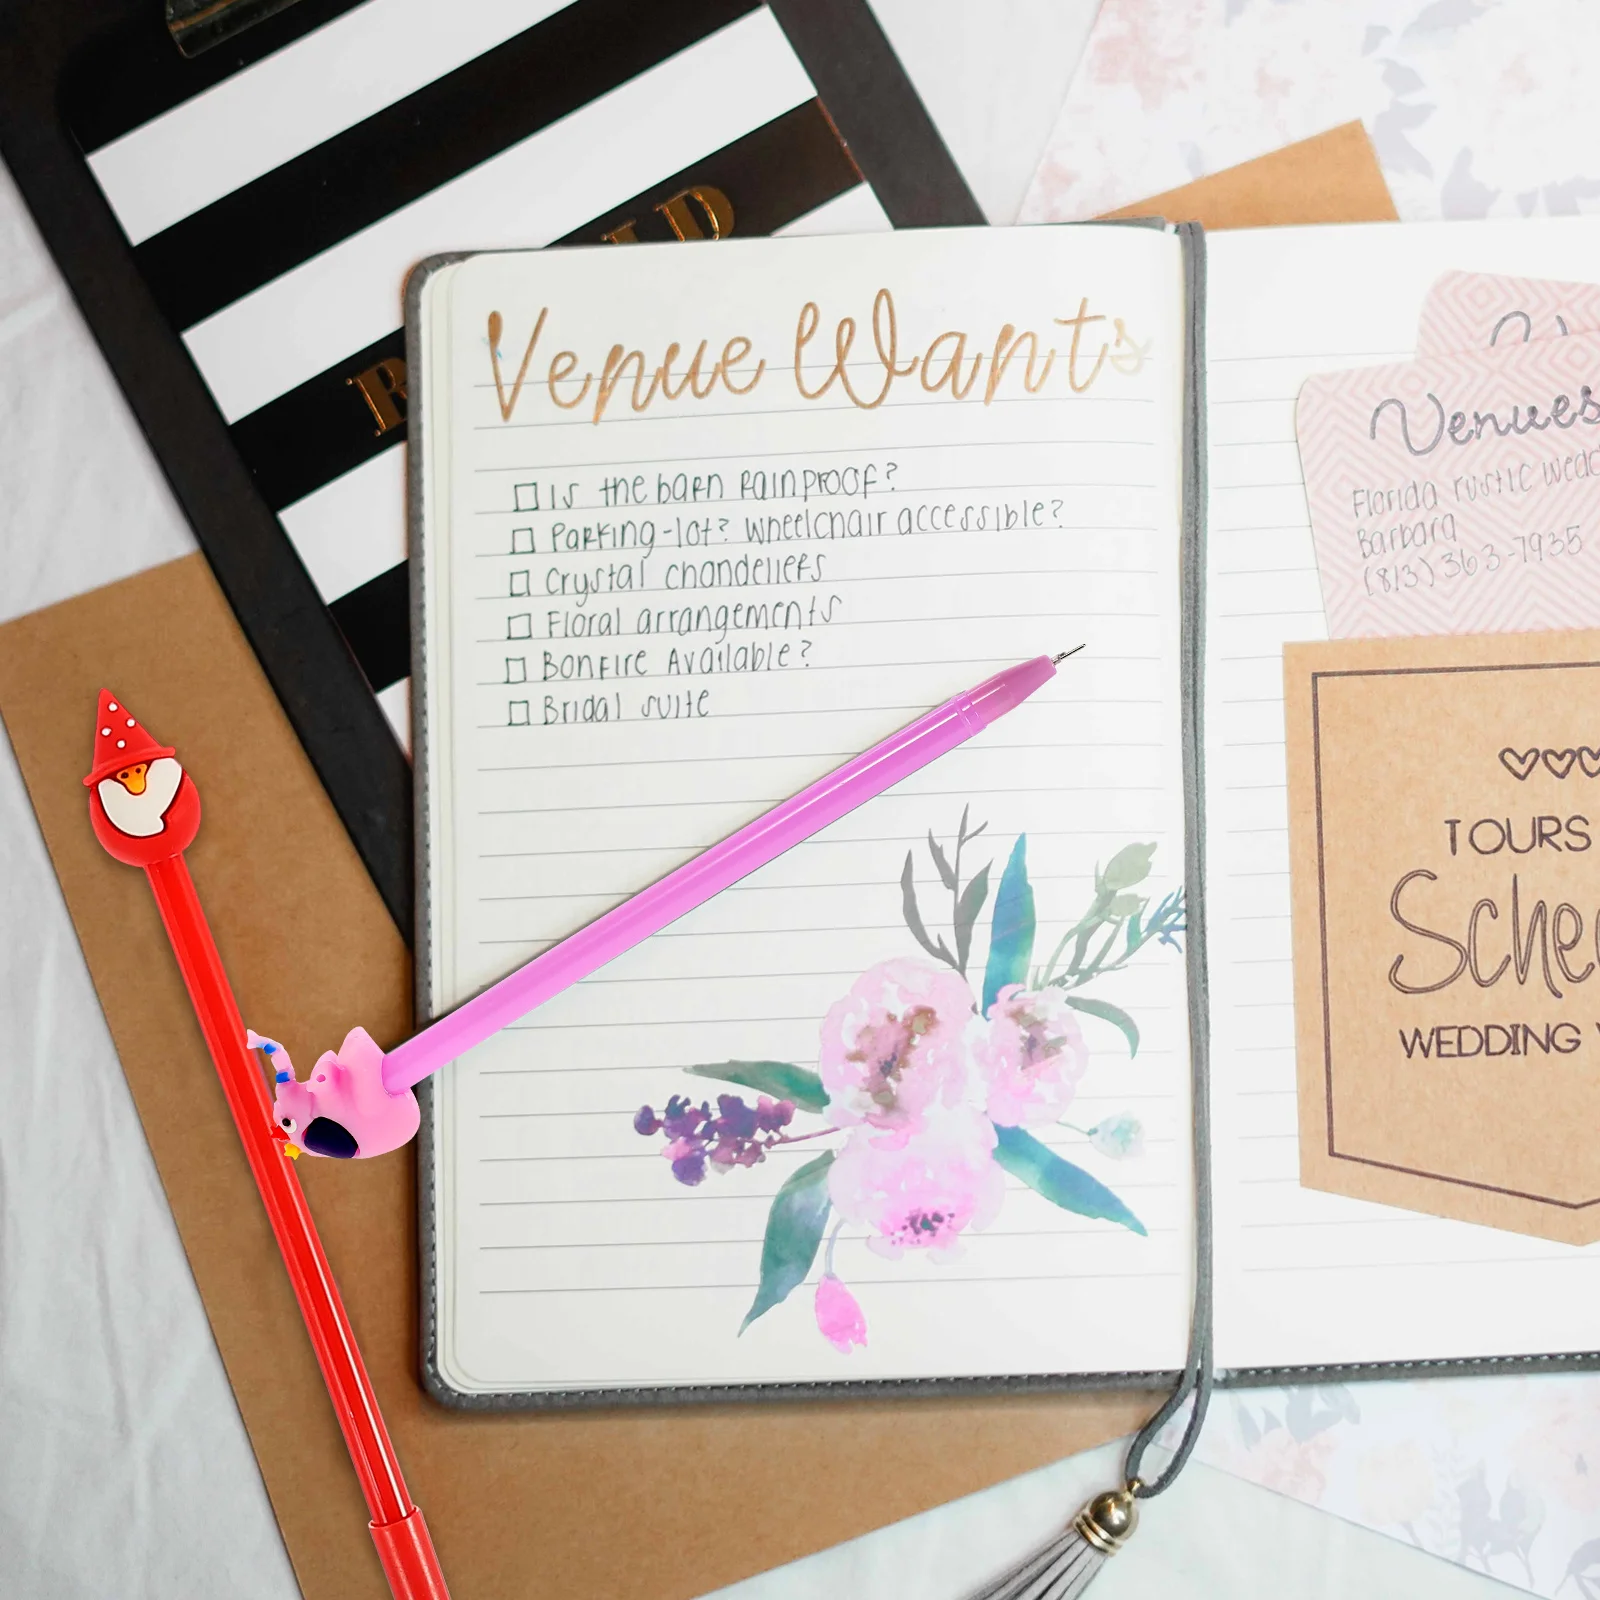 Venue Wants
Is the barn rainproof?
Parking-lot? wheelchair accessible?
Crystal chandeliers
Floral arrangements
Bonfire Available?
Bridal suite
Venues
Florida rustic
Barbara
(813) 363-7935
TOURS
WEDDING